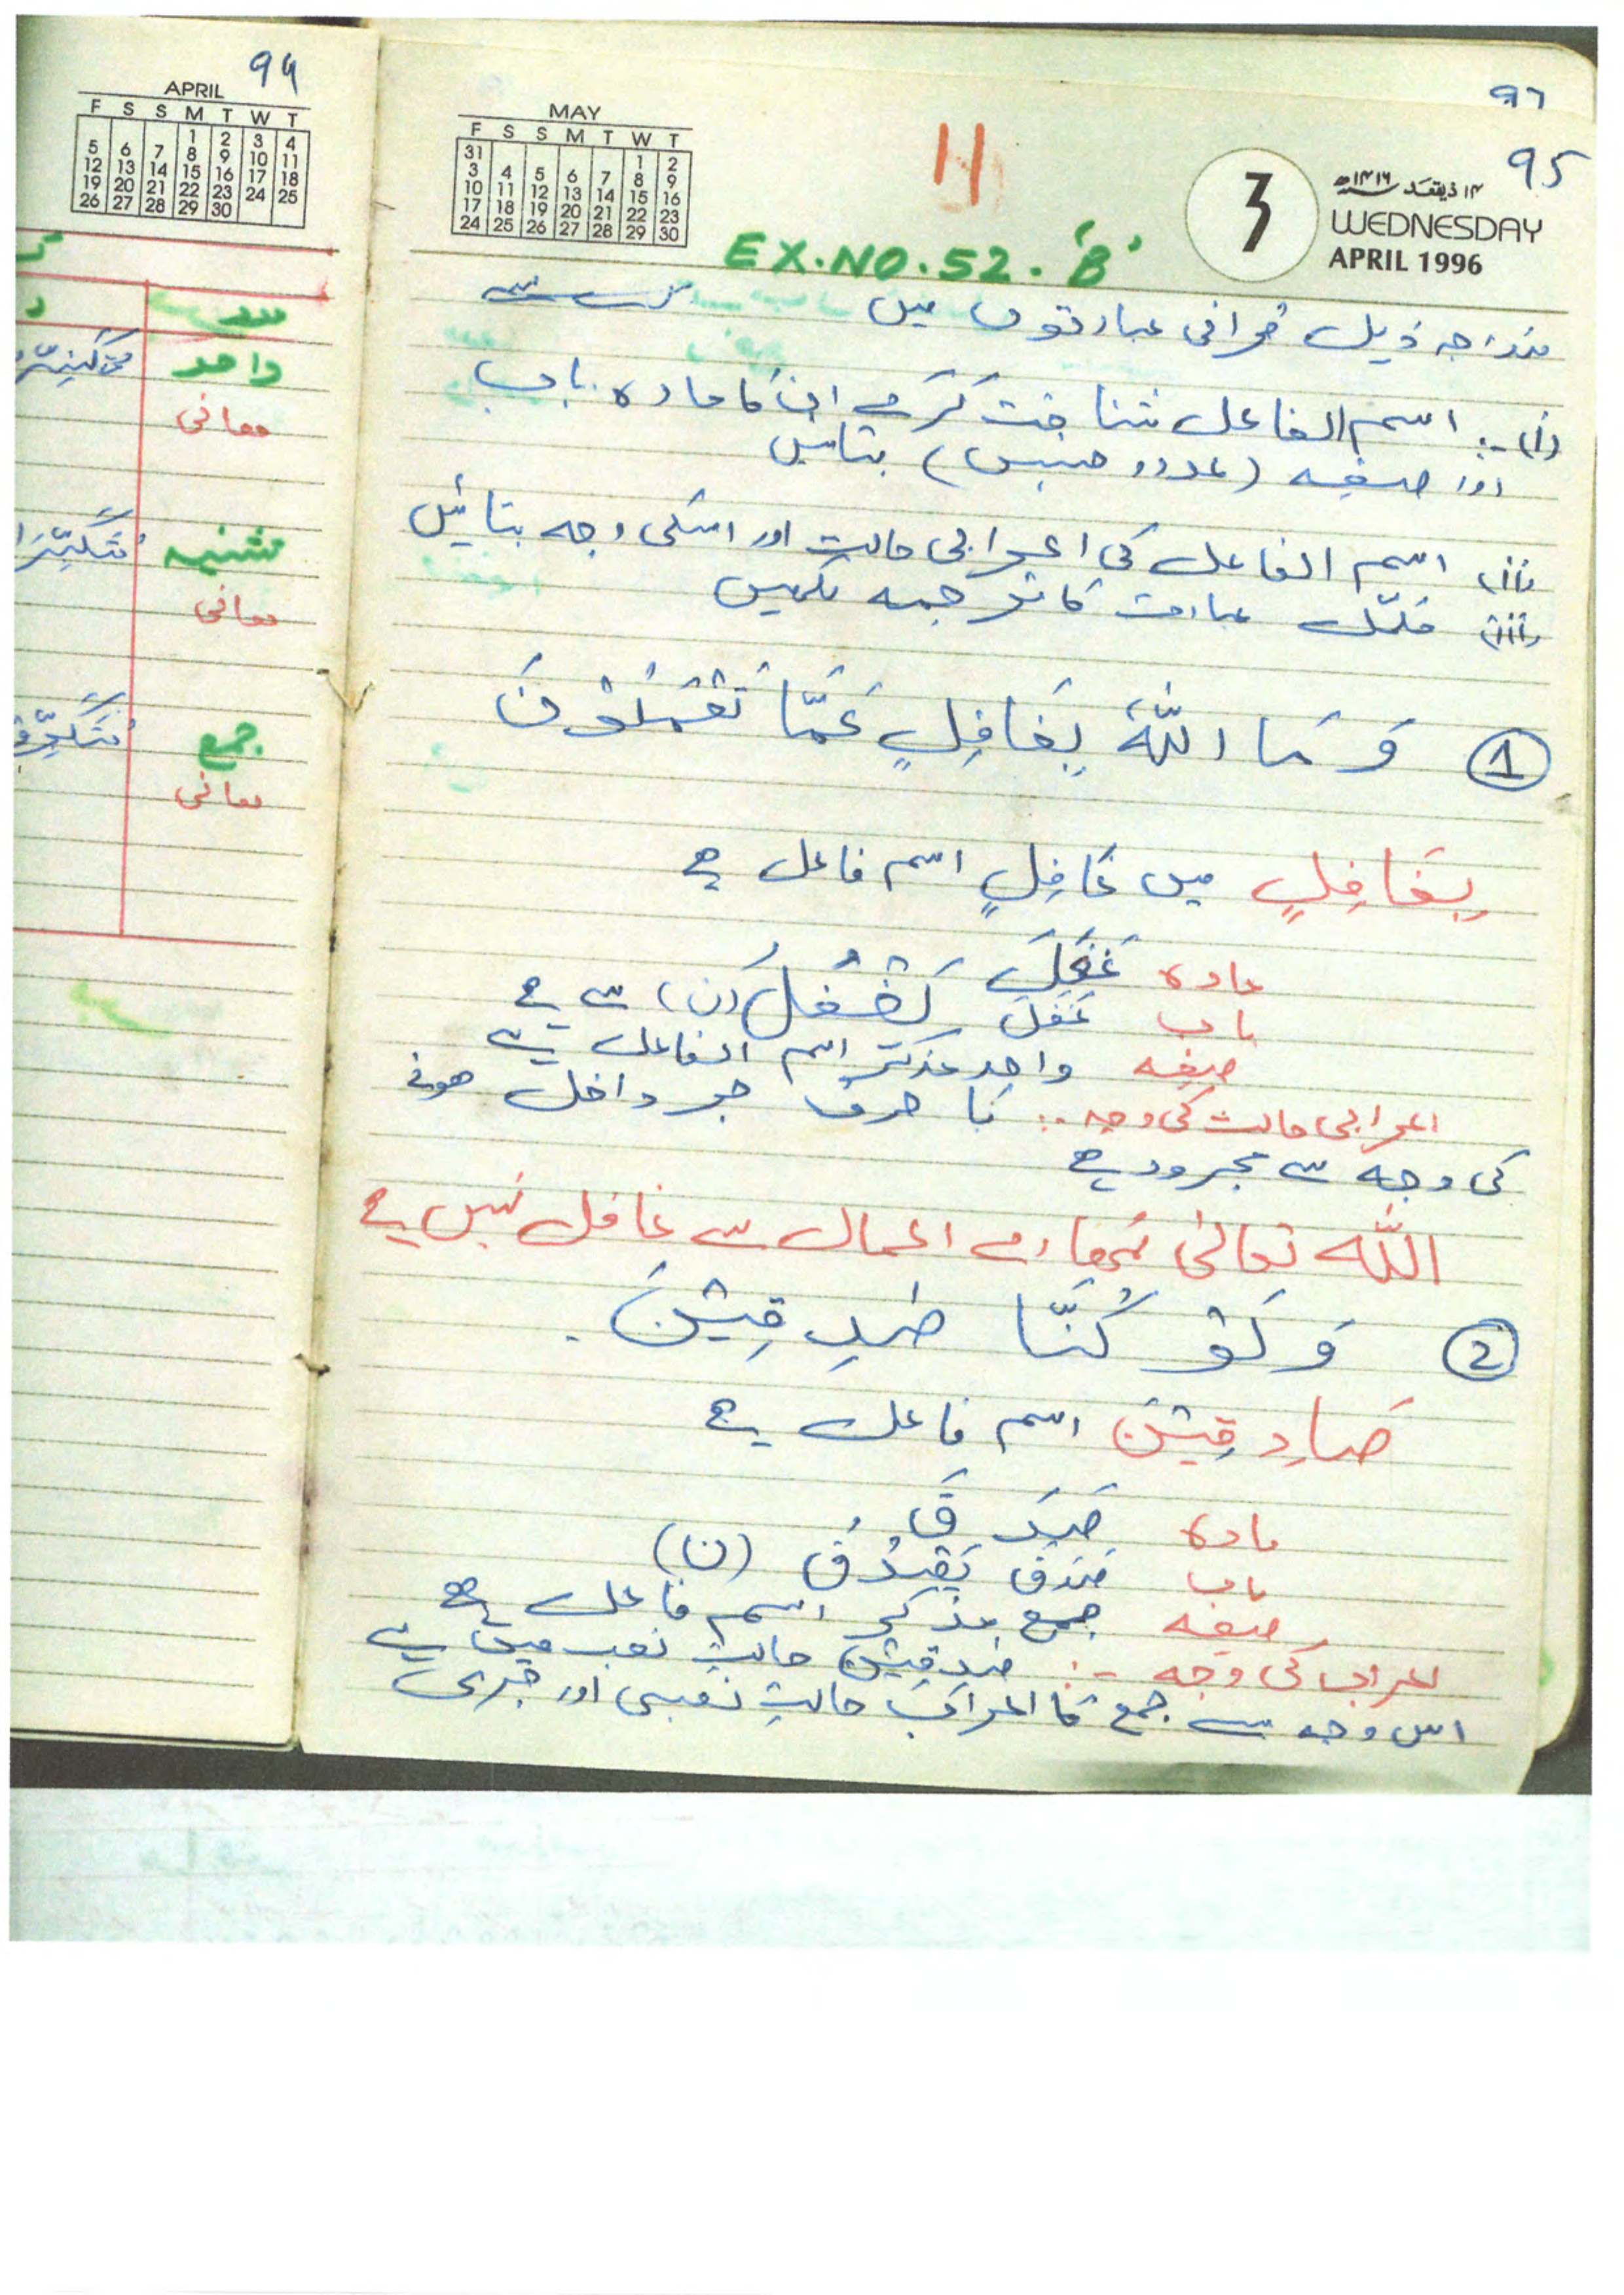 94
APRIL
F S S M T W T
1 2 3 4
5 6 7 8 9 10 11
12 13 14 15 16 17 18
19 20 21 22 23 24 25
26 27 28 29 30
واحد
معانی
تثنیہ
معانی
جمع
معانی
95
MAY
F S S M T W T
31 1 2
3 4 5 6 7 8 9
10 11 12 13 14 15 16
17 18 19 20 21 22 23
24 25 26 27 28 29 30
11
3
۱۴ ذیقعد ۱۴۱۶ھ
WEDNESDAY
APRIL 1996
EX.NO.52.'B'
مندرجہ ذیل قرآنی عبارتوں میں سے
(i):- اسم الفاعل شناخت کرکے ان کا مادہ باب
اور صیغہ (عدد و جنس) بتائیں
(ii) اسم الفاعل کی اعرابی حالت اور اسکی وجہ بتائیں
(iii) مکمّل عبارت کا ترجمہ لکھیں
1 وَ مَا اللّٰهُ بِغَافِلٍ عَمَّا تَعْمَلُوْنَ
بِغَافِلٍ میں غَافِلٍ اسم فاعل ہے
مادہ غَفَلَ
باب غفل يَغْفُلُ (ن) سے ہے
صیغہ واحد مذکر اسم الفاعل ہے
اعرابی حالت کی وجہ :. با حرف جر داخل ہونے
کی وجہ سے مجرور ہے
اللّٰه تعالیٰ تمھارے اعمال سے غافل نہیں ہے
2 وَ لَوْ كُنَّا صٰدِقِيْنَ.
صَادِقِيْنَ اسم فاعل ہے
مادہ صَدَقَ
باب صَدَقَ يَصْدُقُ (ن)
صیغہ جمع مذکر اسم فاعل ہے
اعراب کی وجہ :- صٰدِقِيْنَ حالتِ نصب میں ہے
اس وجہ سے جمع کا اعراب حالتِ نصبی اور جری